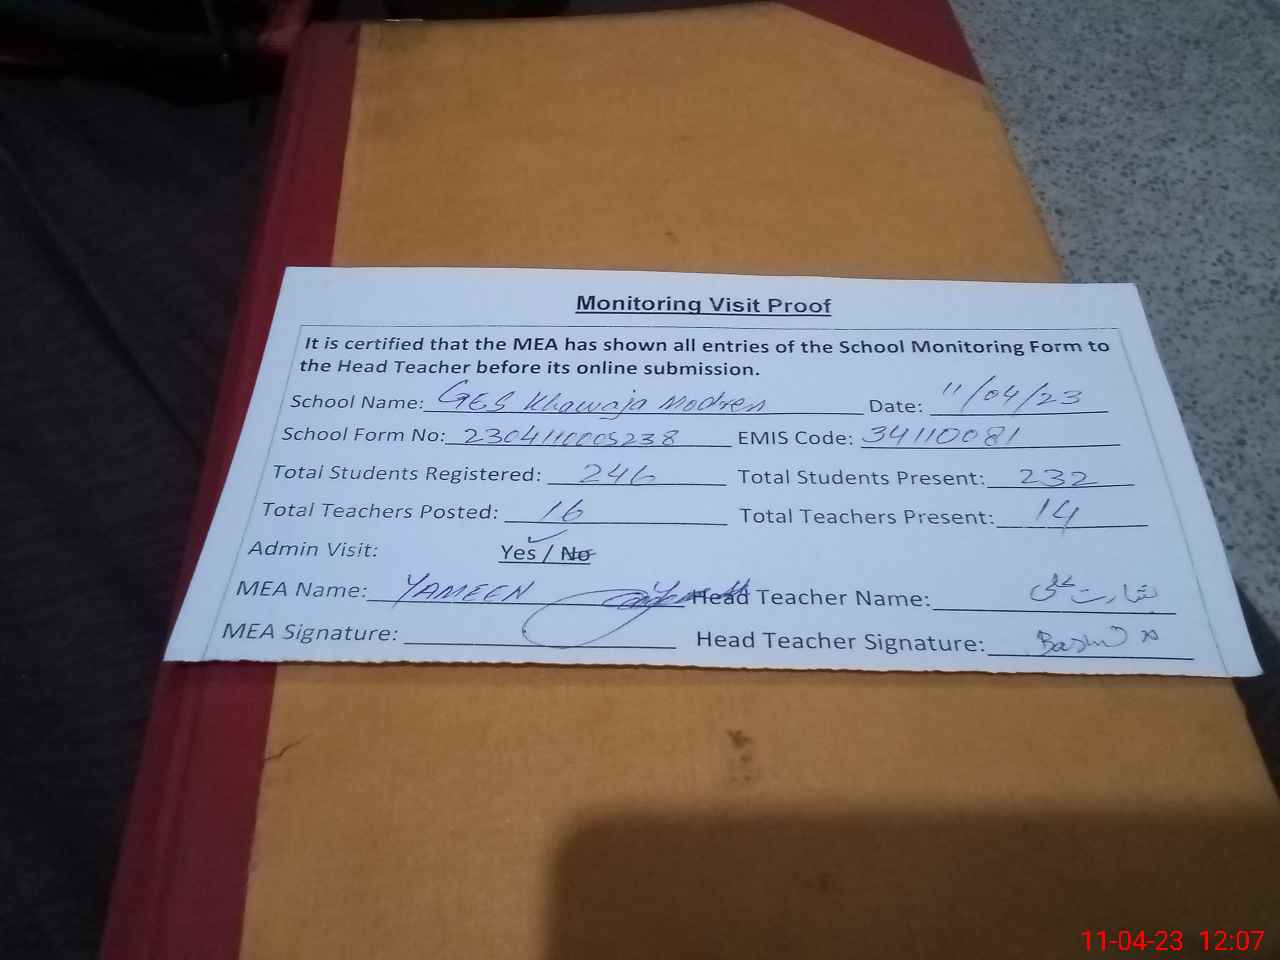 Monitoring Visit Proof
It is certified that the MEA has shown all entries of the School Monitoring Form to
the Head Teacher before its online submission.
School Name: GES Khawaja Modren Date: 11/04/23
School Form No: 2304110005238 EMIS Code: 34110081
Total Students Registered: 246 Total Students Present: 232
Total Teachers Posted: 16 Total Teachers Present: 14
Admin Visit: Yes / No
MEA Name: YAMEEN Head Teacher Name: بشارت علی
MEA Signature: Head Teacher Signature:
11-04-23 12:07